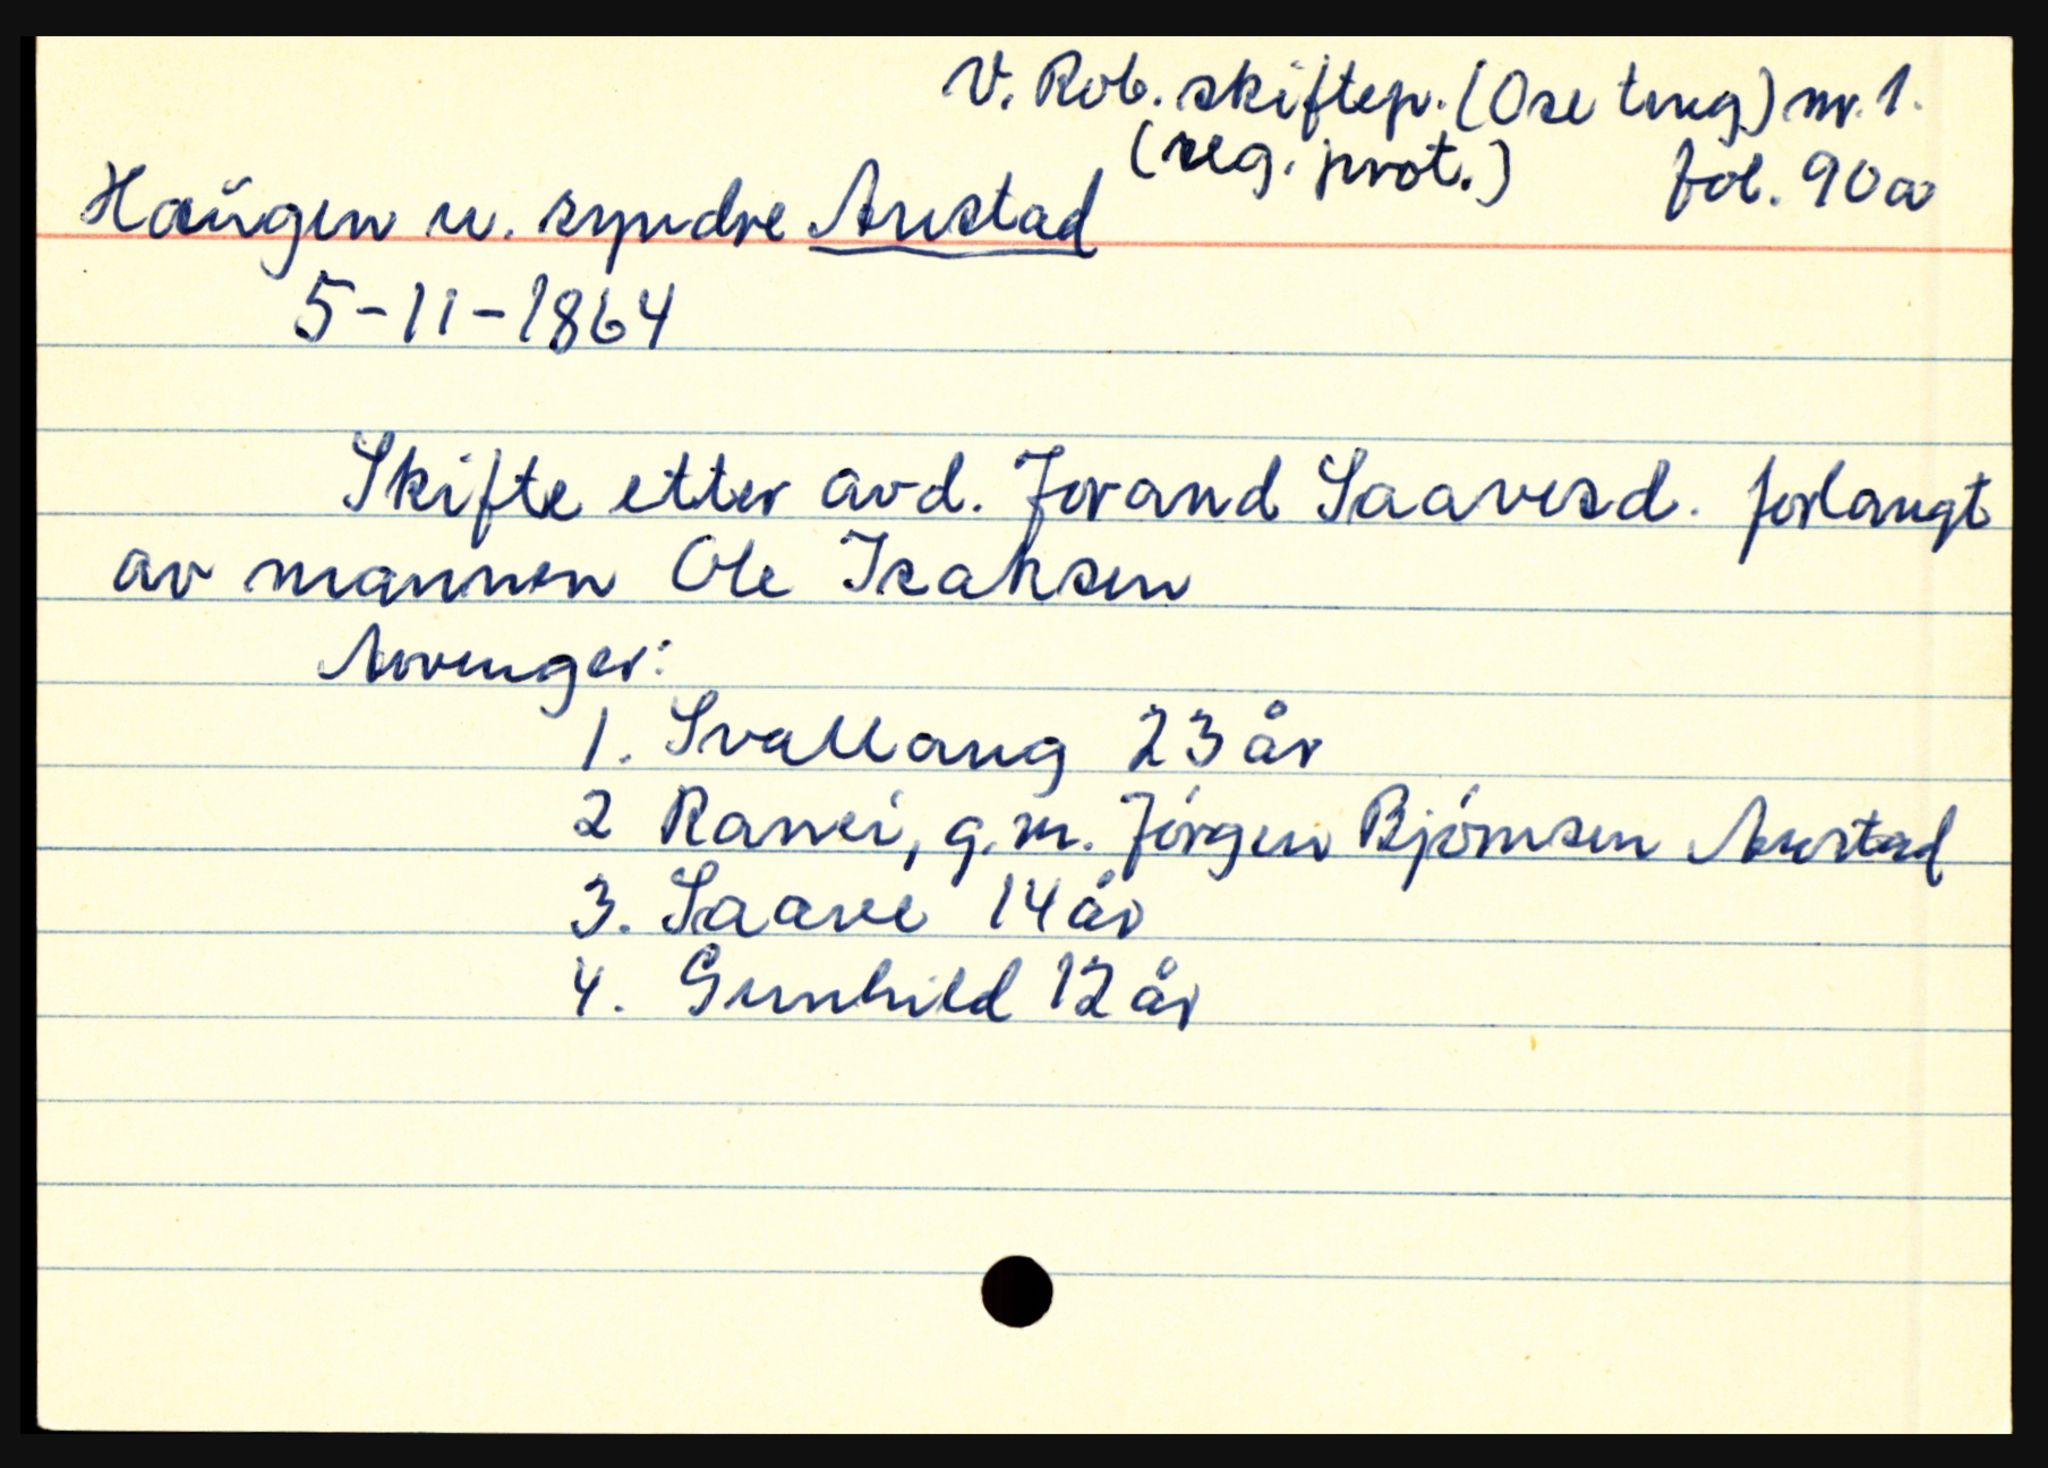 V. Rob. skiftep. (Ose ting) nr. 1.
(reg. prot.) fol. 90a
Haugen u. syndre Austad
5-11-1864
Skifte etter avd. Jorand Saavesd. forlangt
av mannen Ole Isaksen
Arvinger:
1. Svallaug 23 år
2 Ranvei, g.m. Jørgen Bjørnsen Austad
3. Saave 14 år
4. Gunhild 12 år